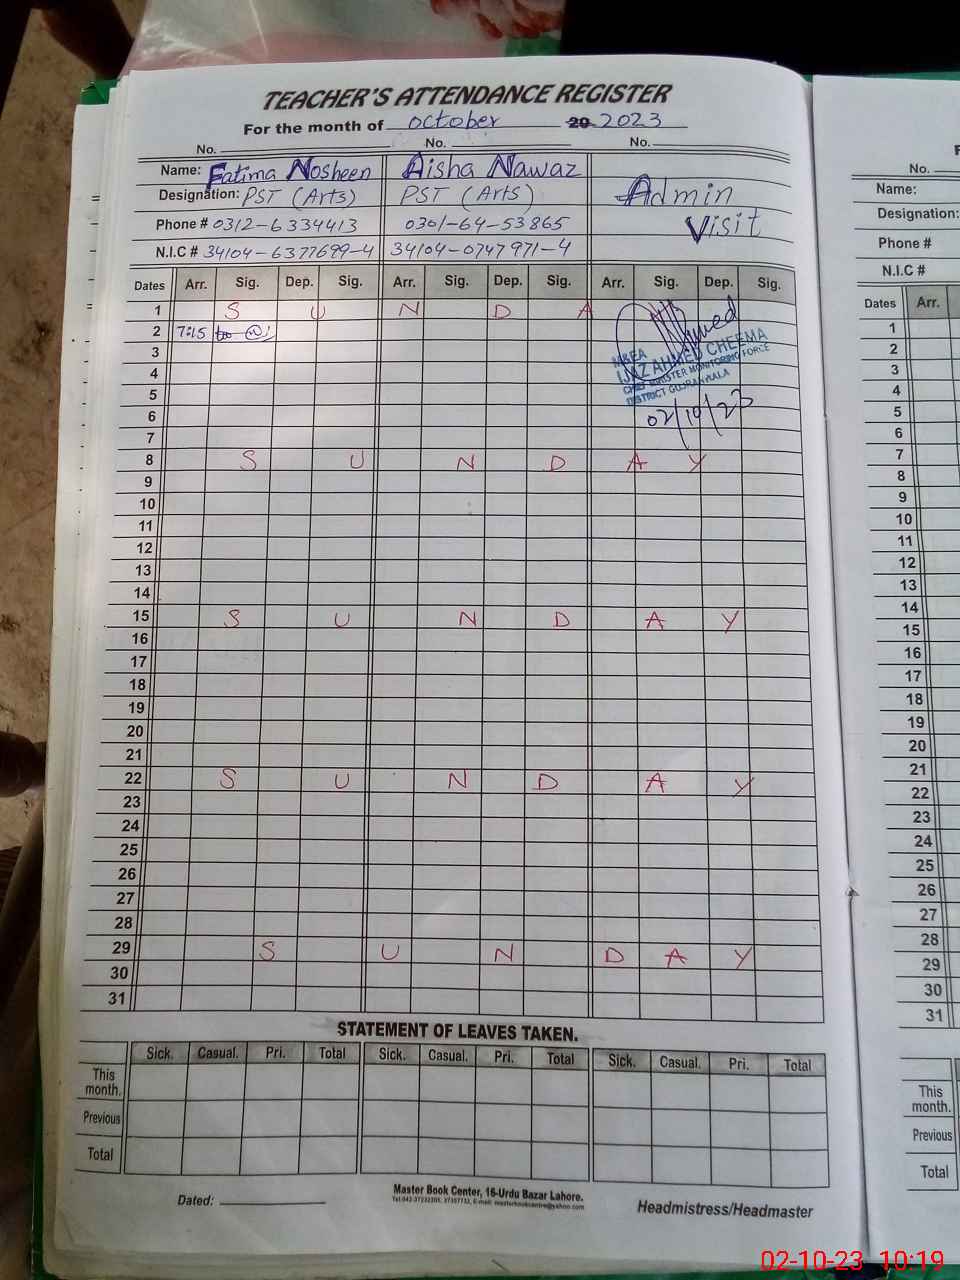 TEACHER'S ATTENDANCE REGISTER
For the month of October 20 2023
No. No. No.
Name: Fatima Nosheen Aisha Nawaz Admin
Designation: PST (Arts) PST (Arts) Visit
Phone # 0312-6334413 0301-64-53865
N.I.C # 34104-6377699-4 34104-0747971-4
Dates Arr. Sig. Dep. Sig. Arr. Sig. Dep. Sig. Arr. Sig. Dep. Sig.
1 S U N D A
2 7:15
M&EA
IJAZ AHMED CHEEMA
CHIEF MINISTER MONITORING FORCE
DISTRICT GUJRANWALA
02/10/23
3
4
5
6
7
8 S U N D A Y
9
10
11
12
13
14
15 S U N D A Y
16
17
18
19
20
21
22 S U N D A Y
23
24
25
26
27
28
29 S U N D A Y
30
31
STATEMENT OF LEAVES TAKEN.
Sick. Casual. Pri. Total Sick. Casual. Pri. Total Sick. Casual. Pri. Total
This month.
Previous
Total
Master Book Center, 16-Urdu Bazar Lahore.
Dated: Headmistress/Headmaster
F
No.
Name:
Designation:
Phone #
N.I.C #
Dates Arr.
1
2
3
4
5
6
7
8
9
10
11
12
13
14
15
16
17
18
19
20
21
22
23
24
25
26
27
28
29
30
31
This month.
Previous
Total
02-10-23 10:19